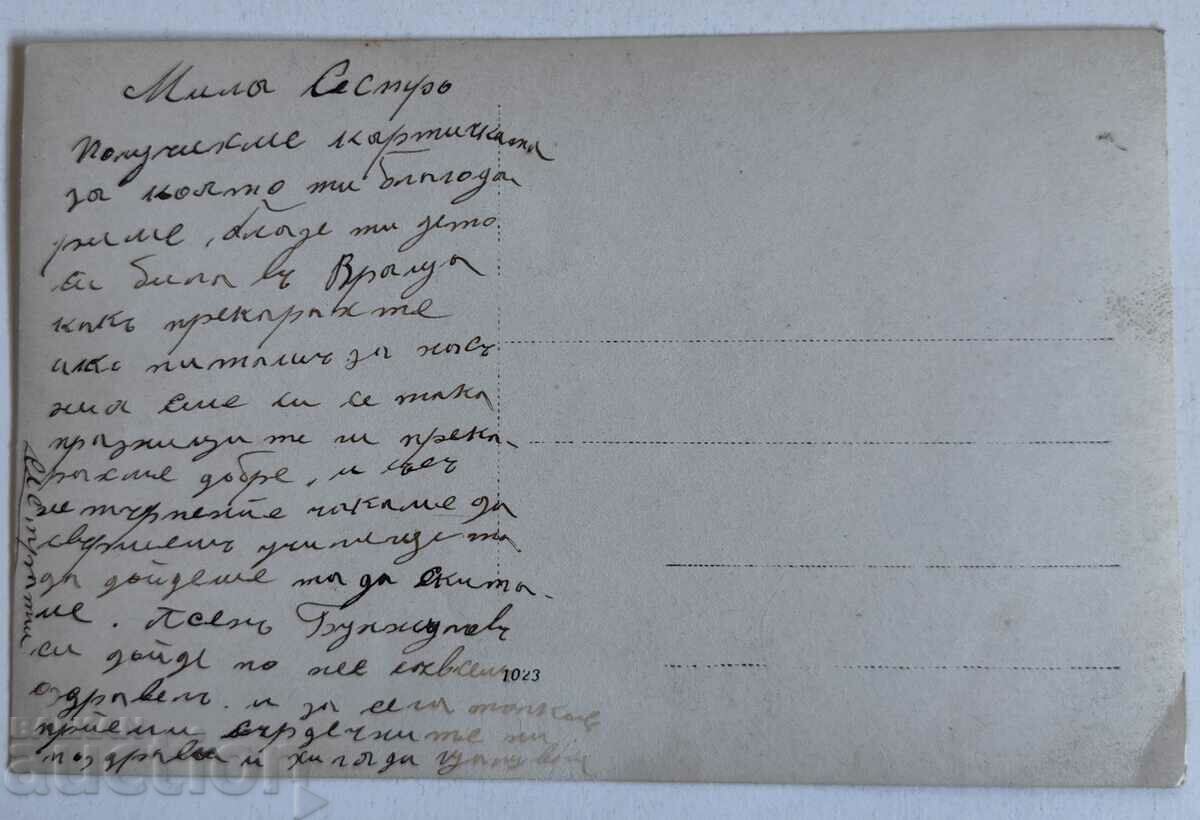 Мила Сестро
Получихме картичката
за която ти благода
риме, блазе ти дето
си била въ Враца
какъ прекарахте
ако питашъ за насъ
ния сме си се така
празницитѣ ги прека-
рахме добре, и със
нетърпение чакаме да
свършишъ училището
да дойдеше та да скита-
ме. Асенъ
си дойде но не съвсемъ
оздравелъ. и за сега толкова
приеми сърдечните ни
поздрави и хиляди целувки
1023
auction